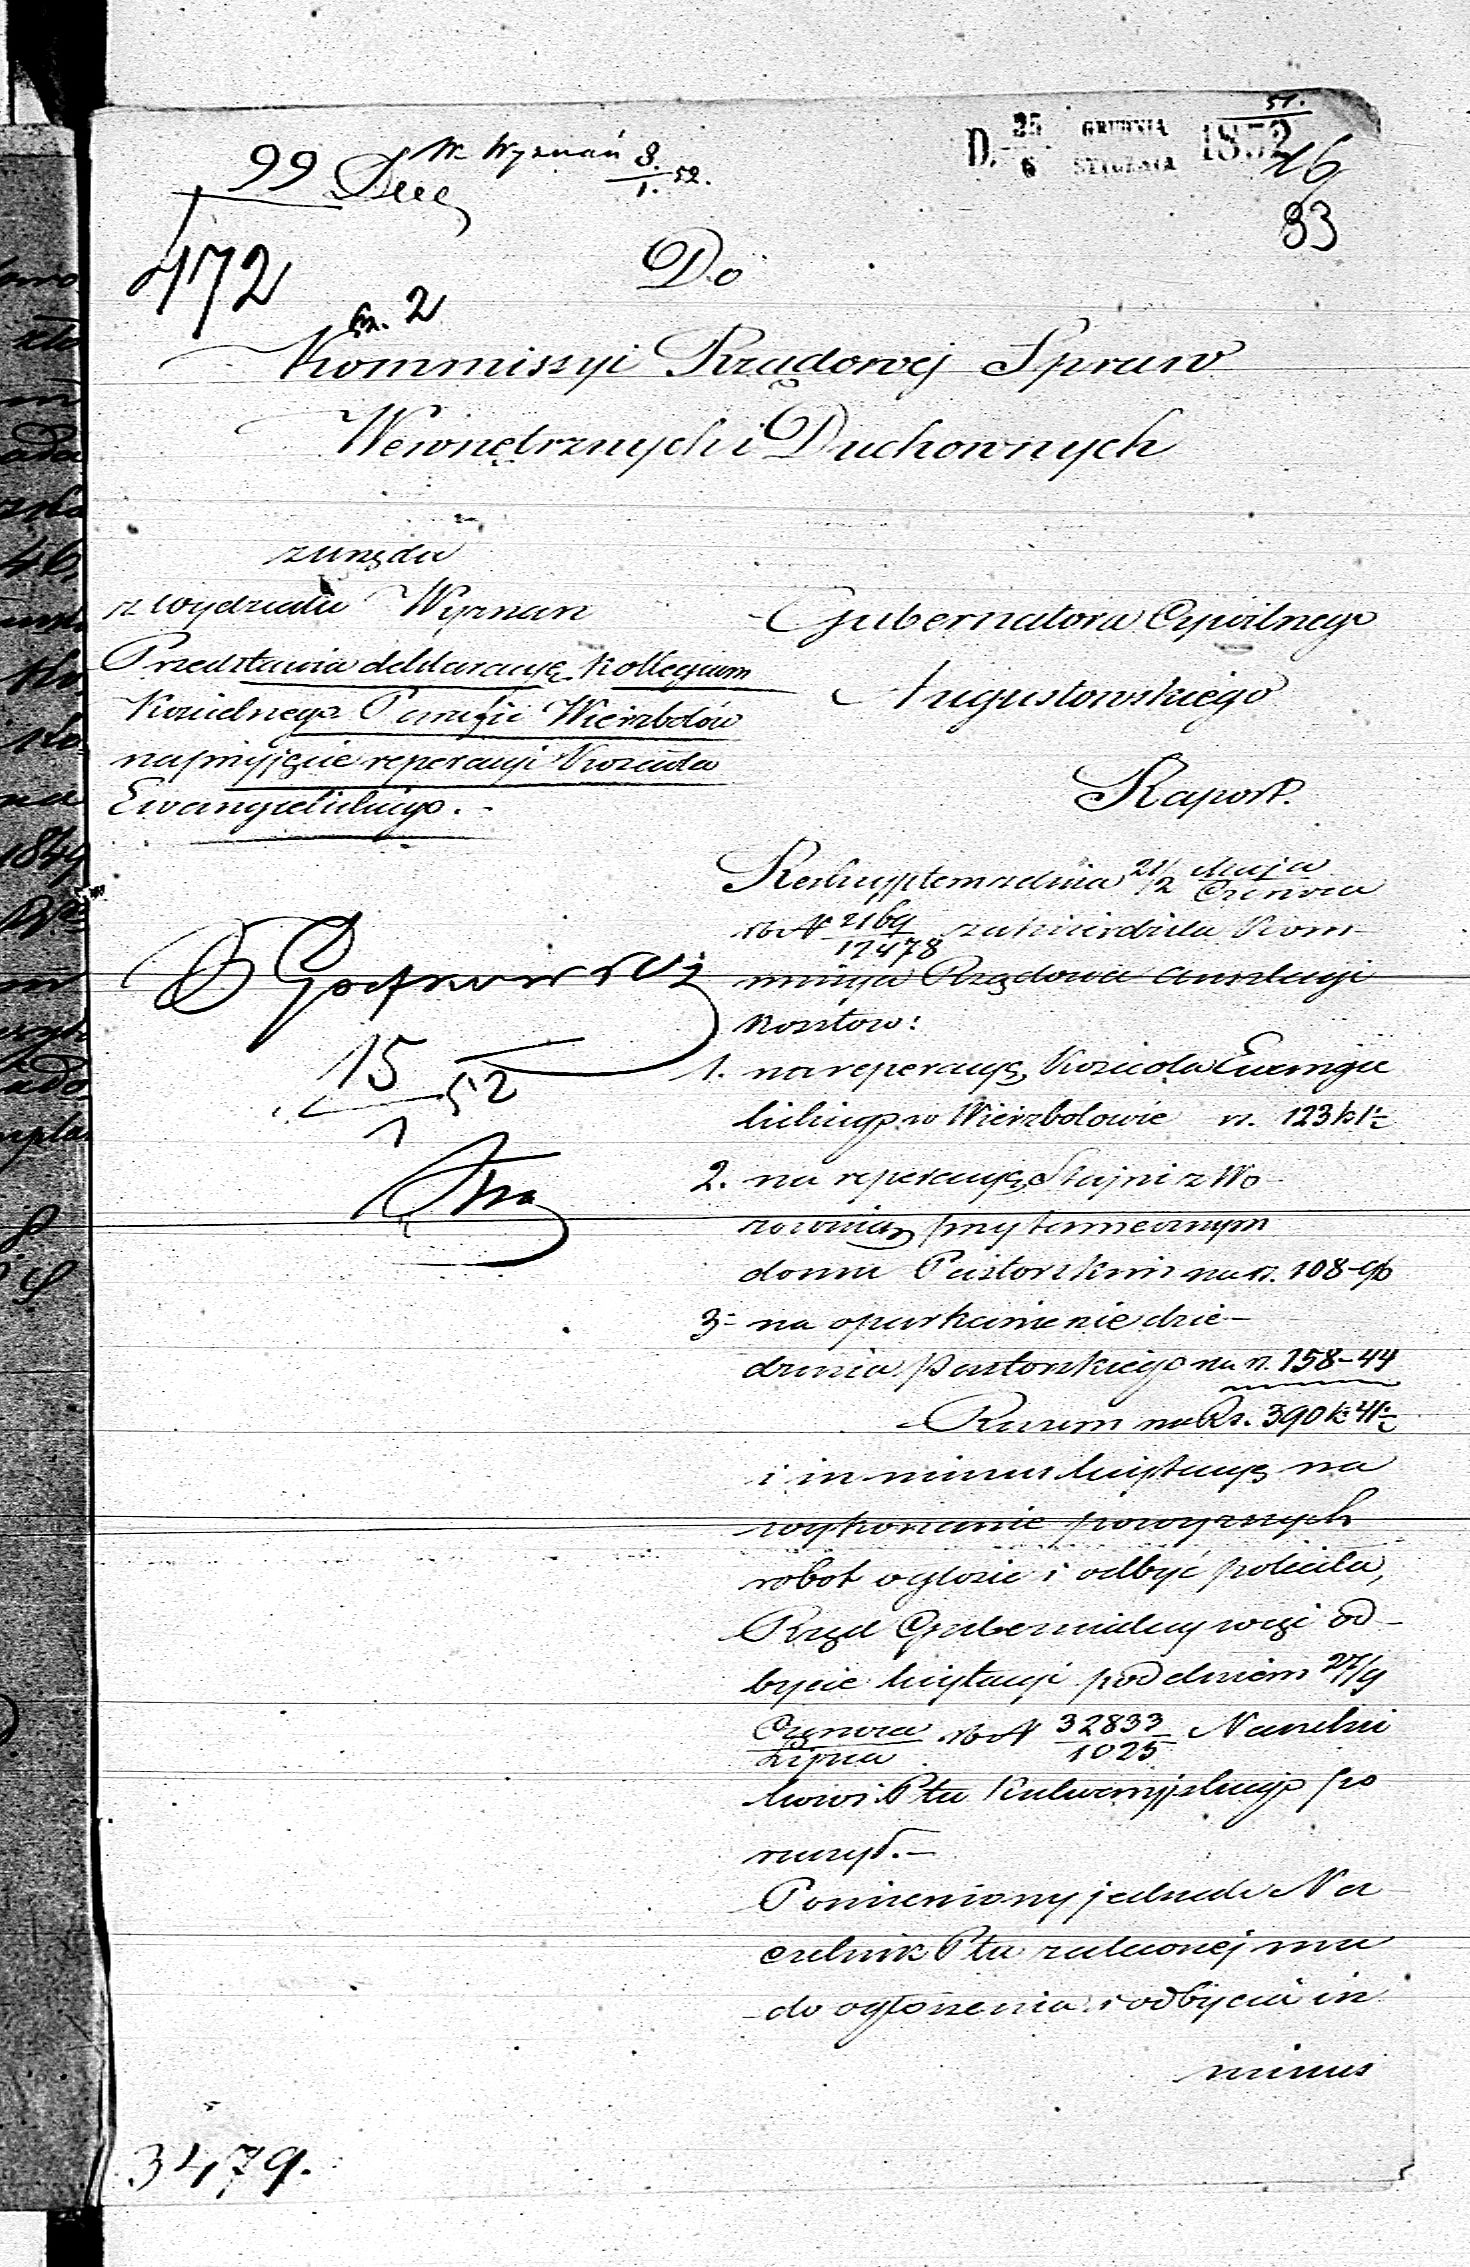 99
W. Wyznań 8/1. 52.
D. 25/6 GRUDNIA/STYCZNIA 1852
51.
16
93
472
Do
2
Kommissyi Rządowej Spraw
Wewnętrznych i Duchownych
z urzędu
z Wydziału Wyznan
Przedstawia deklaracyę Kollegium
Kościelnego Parafii Wierzbołów
na przyjęcie reperacyi Kościoła
Ewangielickiego.
Gubernatora Cywilnego
Augustowskiego
Raport.
Reskryptem z dnia 21/2 Maja/Czerwca
rb N 2169/12478 zatwierdziła Kom-
missya Rządowa anszlagi
kosztow:
1. na reperacyę Kościoła Ewangie
lickiego w Wierzbołowie rs. 123 k 1
2. na reperacyę Stajni z Wo
zownią przy tamecznym
domu Pastorskim na rs. 108-96
3- na oparkanienie dzie-
dzinca pastorskiego na rs. 158-44
Razem na Rs. 390 k 41
i in minus licytacyę na
wykonanie powyzszych
robot ogłosic i odbyć poleciła,
Rząd Gubernialny więc od-
bycie licytacyi pod dniem 27/9
Czerwca/Lipca rb N 32833/1025 Naczelni
kowi Ptu Kalwaryjskiego po
ruczył.-
Pomieniony jednak Na
czelnik Ptu zaleconej mu
do ogłoszenia i odbycia in
minus
15/1 52
3479.